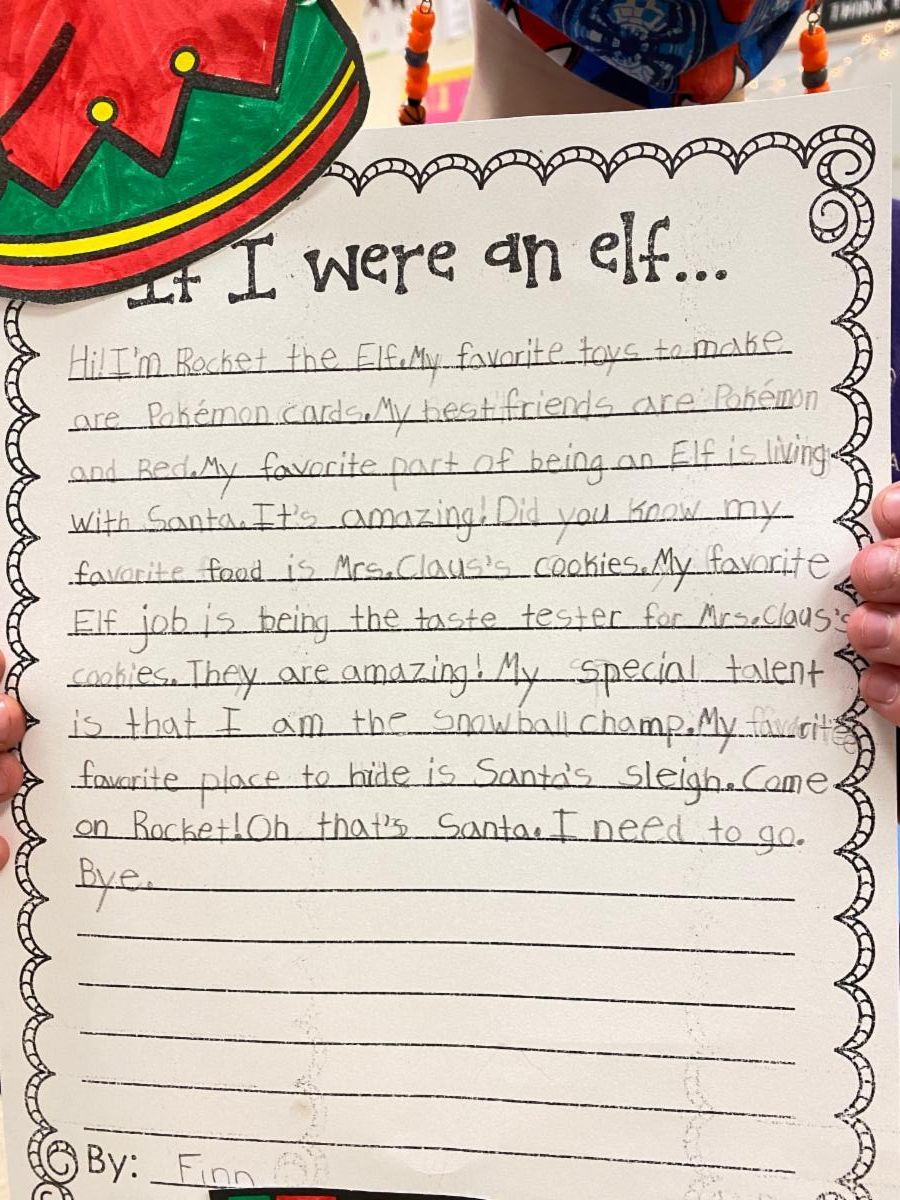 If I were an elf...
Hi! I'm Rocket the Elf. My favorite toys to make
are Pokémon cards. My best friends are Pokémon
and Red. My favorite part of being an Elf is living
with Santa. It's amazing! Did you know my
favorite food is Mrs. Claus's cookies. My favorite
Elf job is being the taste tester for Mrs. Claus's
cookies. They are amazing! My special talent
is that I am the snowball champ. My favorite
favorite place to hide is Santa's sleigh. Come
on Rocket! Oh that's Santa. I need to go.
Bye.
By: Finn